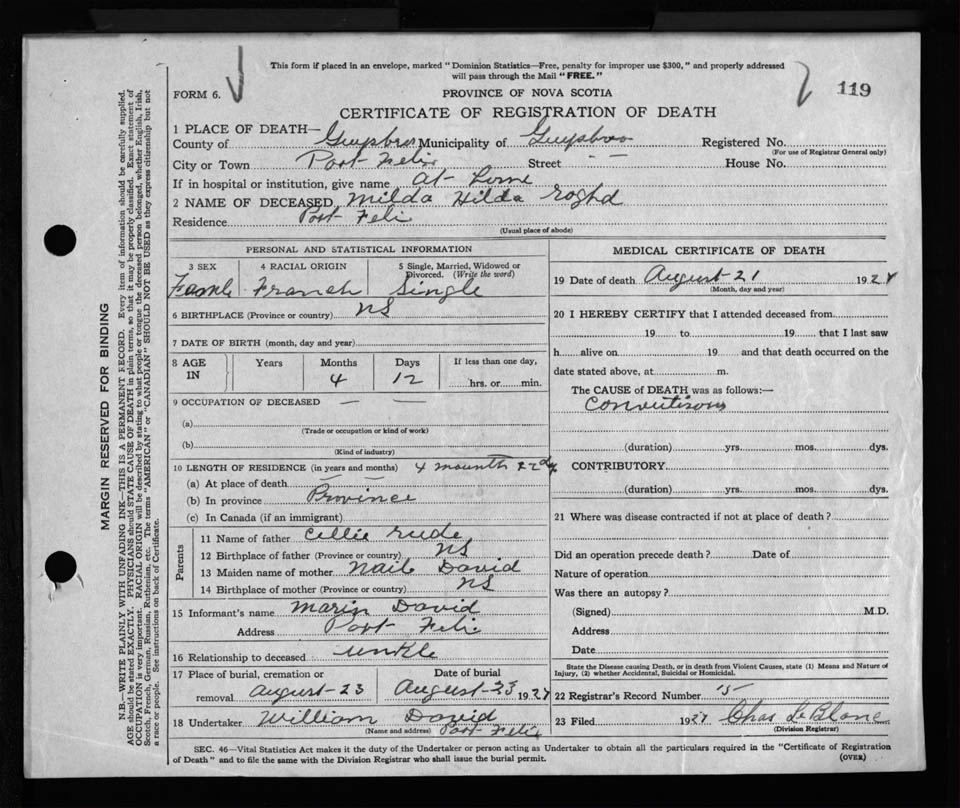 This form if placed in an envelope, marked "Dominion Statistics—Free, penalty for improper use $300," and properly addressed
will pass through the Mail "FREE."
FORM 6.
PROVINCE OF NOVA SCOTIA
119
CERTIFICATE OF REGISTRATION OF DEATH
1 PLACE OF DEATH—
County of Guysboro Municipality of Guysboro Registered No.
(For use of Registrar General only)
City or Town Port Felix Street — — House No.
If in hospital or institution, give name at Home
2 NAME OF DECEASED Milda Hilda
Residence Port Felix
(Usual place of abode)
PERSONAL AND STATISTICAL INFORMATION
3 SEX 4 RACIAL ORIGIN 5 Single, Married, Widowed or
Divorced. (Write the word)
Franch Single
6 BIRTHPLACE (Province or country) NS
7 DATE OF BIRTH (month, day and year)
8 AGE IN Years Months Days If less than one day,
4 12 hrs. or min.
9 OCCUPATION OF DECEASED — —
(a)
(Trade or occupation or kind of work)
(b)
(Kind of industry)
10 LENGTH OF RESIDENCE (in years and months) 4
(a) At place of death — —
(b) In province Province
(c) In Canada (if an immigrant)
Parents
11 Name of father Rude
12 Birthplace of father (Province or country) NS
13 Maiden name of mother David
14 Birthplace of mother (Province or country) NS
15 Informant's name David
Address Port Felix
16 Relationship to deceased unkle
17 Place of burial, cremation or Date of burial
removal August-23 August-23 192
18 Undertaker William David
(Name and address) Port Felix
MEDICAL CERTIFICATE OF DEATH
19 Date of death August-21 192
(Month, day and year)
20 I HEREBY CERTIFY that I attended deceased from
19 to 19 that I last saw
h alive on 19 and that death occurred on the
date stated above, at m.
The CAUSE of DEATH was as follows:—
(duration) yrs. mos. dys.
CONTRIBUTORY
(duration) yrs. mos. dys.
21 Where was disease contracted if not at place of death?
Did an operation precede death? Date of
Nature of operation
Was there an autopsy?
(Signed) M.D.
Address
Date
State the Disease causing Death, or in death from Violent Causes, state (1) Means and Nature of
Injury, (2) whether Accidental, Suicidal or Homicidal.
22 Registrar's Record Number
23 Filed 192 Chas LeBlanc
(Division Registrar)
SEC. 46—Vital Statistics Act makes it the duty of the Undertaker or person acting as Undertaker to obtain all the particulars required in the "Certificate of Registration
of Death" and to file the same with the Division Registrar who shall issue the burial permit.
(OVER)
MARGIN RESERVED FOR BINDING
N.B.—WRITE PLAINLY WITH UNFADING INK—THIS IS A PERMANENT RECORD. Every item of information should be carefully supplied.
AGE should be stated EXACTLY. PHYSICIANS should STATE CAUSE OF DEATH in plain terms, so that it may be properly classified. Exact statement of
OCCUPATION is very important. RACIAL ORIGIN will be described by stating to what people or tongue the deceased person belonged, whether English, Irish,
Scotch, French, German, Russian, Ruthenian, etc. The terms "AMERICAN" or "CANADIAN" SHOULD NOT BE USED as they express citizenship but not
a race or people. See instructions on back of Certificate.